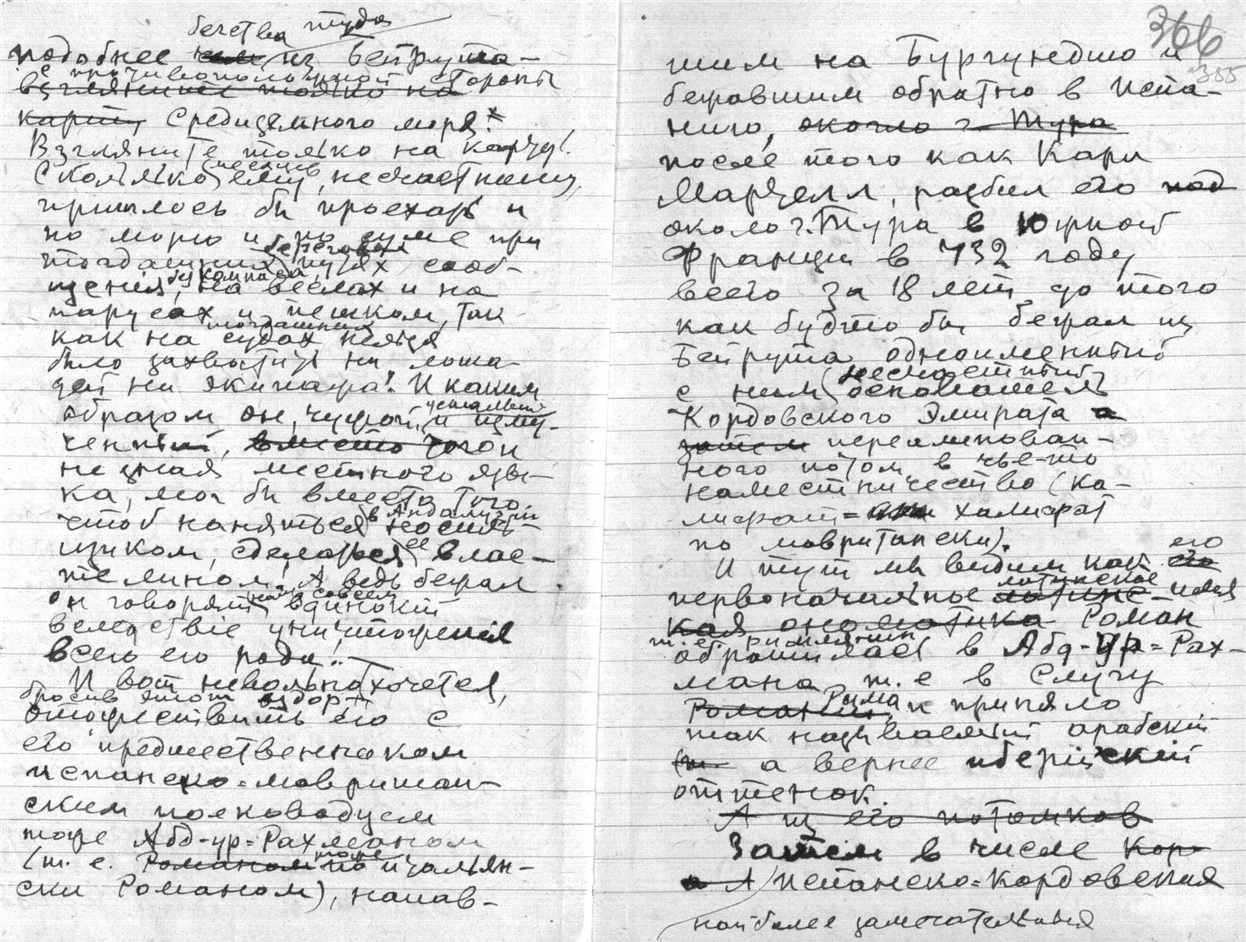 бегства туда
подобнее из Бейрута
с противоположной стороны
взглянише только на
карту Средиземного моря.*
Взгляните только на карту!
месяцев
Сколько ему, несчастному,
пришлось бы проехать и
по морю и по суше при
береговых
тогдашних путях сооб-
без компаса,
щения, на веслах и на
парусах и пешком, так
тогдашних
как на судах нельзя
было захватить ни лоша-
дей ни экипажа! И каким
усталый
образом он, чужой, и изму-
ченный, вместо того
не зная местного язы-
ка, мог бы вместо того
в Андалузии
чтоб наняться носиль-
ее
щиком, сделаться влас-
телином! А ведь бежал
нам совсем
он говорят в одиночку
вследствіе уничтоженія
всего его рода!..
И вот невольно хочется,
бросив этот вздор
отожествить его с
его предшественником
испанско-мавритан-
ским полководцем
тоже Абд-ур-Рахманом
тоже
(т. е. Романом по италья́н-
ски Романом), напав-
366
355
шим на Бургундию и
бежавшим обратно в Испа-
нию, около г. Тура
после того как Карл
Марчелл, разбил его под
около г. Тура в Южной
Франции в 732 году
всего за 18 лет до того
как будто бы бежал из
Бейрута одноименный
несчастный
с ним основатель
Кордовского Эмирата а
затем переименован-
ного потом в чье-то
наместничество (ка-
лифат= халифат
по мавритански).
его
И тут мы видим как его
латинское
первоначальное латинс- имя
кая ономатика Роман
т. е. римлянин
обратилась в Абд-Ур-Рах-
мана т. е в Слугу
Рима
Романии и приняло
так называемый арабскій
(т- а вернее иберійскій
оттенок.
А из его потомков
Затем в числе Кор-
А Испанско-Кордовская
наиболее замечательныя